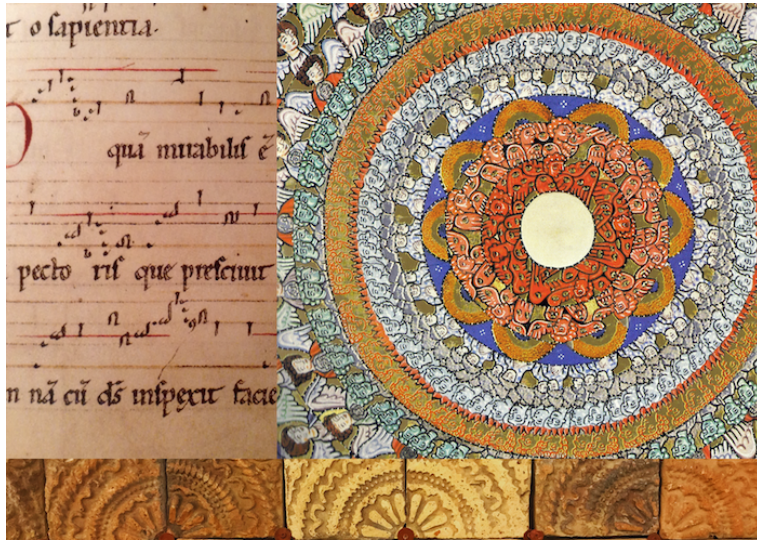 o sapientia.
O quā mirabilis ē
pecto ris que presciuit
n nā cū ds̄ inspexit facie